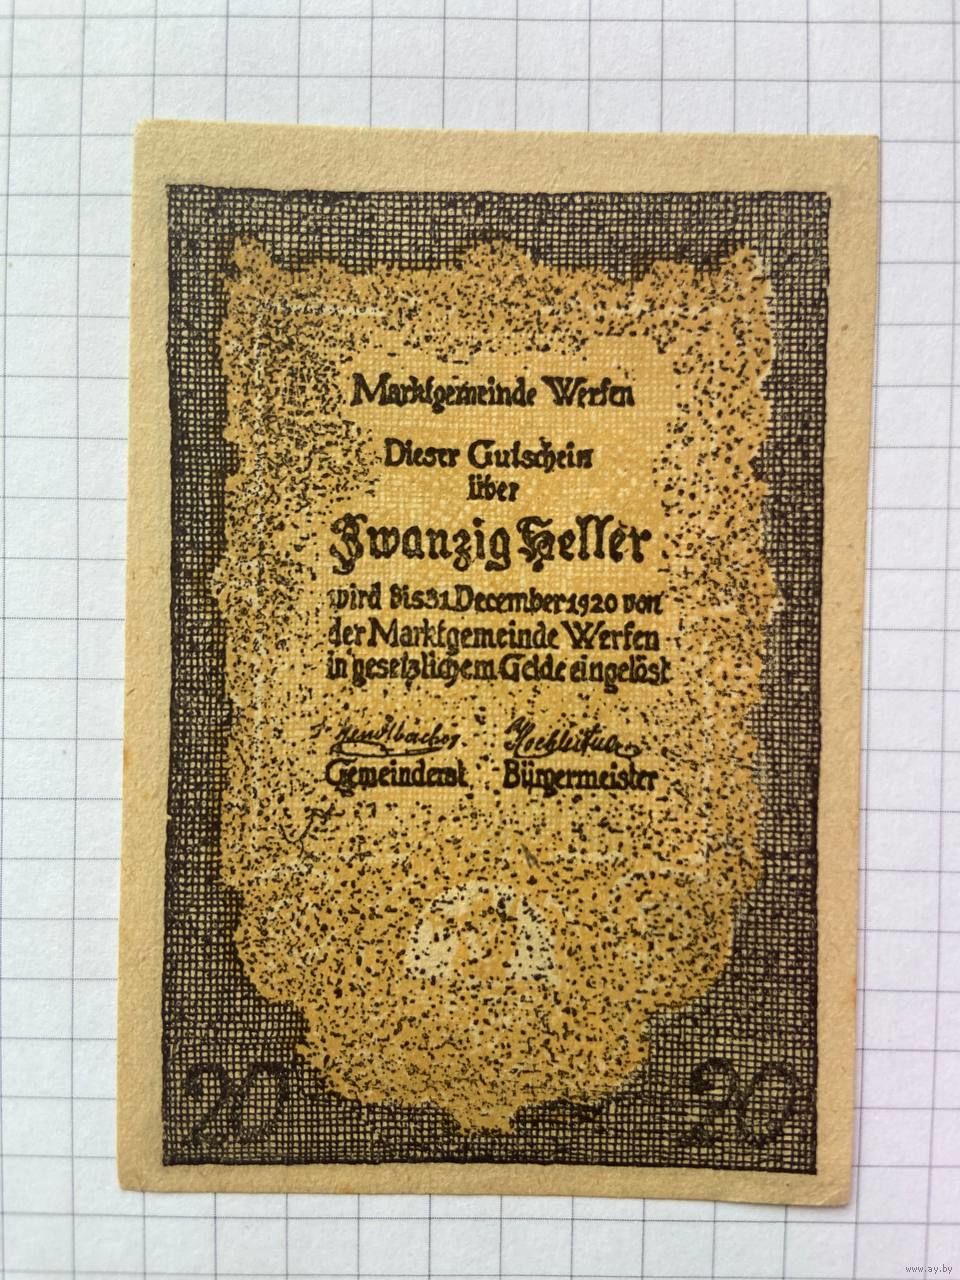 Marktgemeinde Werfen
Dieser Gutschein
über
Zwanzig Heller
wird bis 31. December 1920 von
der Marktgemeinde Werfen
in gesetzlichem Gelde eingelöst
Gemeinderat Bürgermeister
20 20
www.ay.by